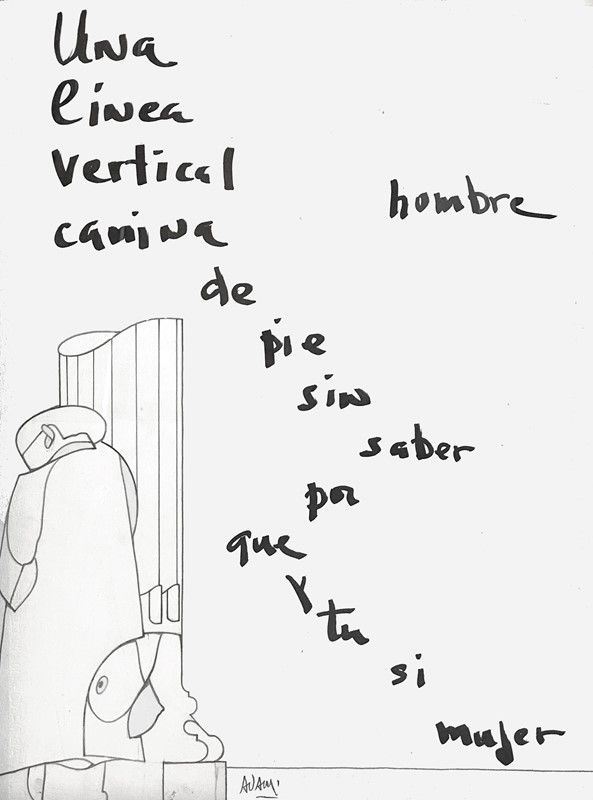 Una
linea
vertical
hombre
camina
de
pie
sin
saber
por
que
y
tu
si
mujer
ADAMI